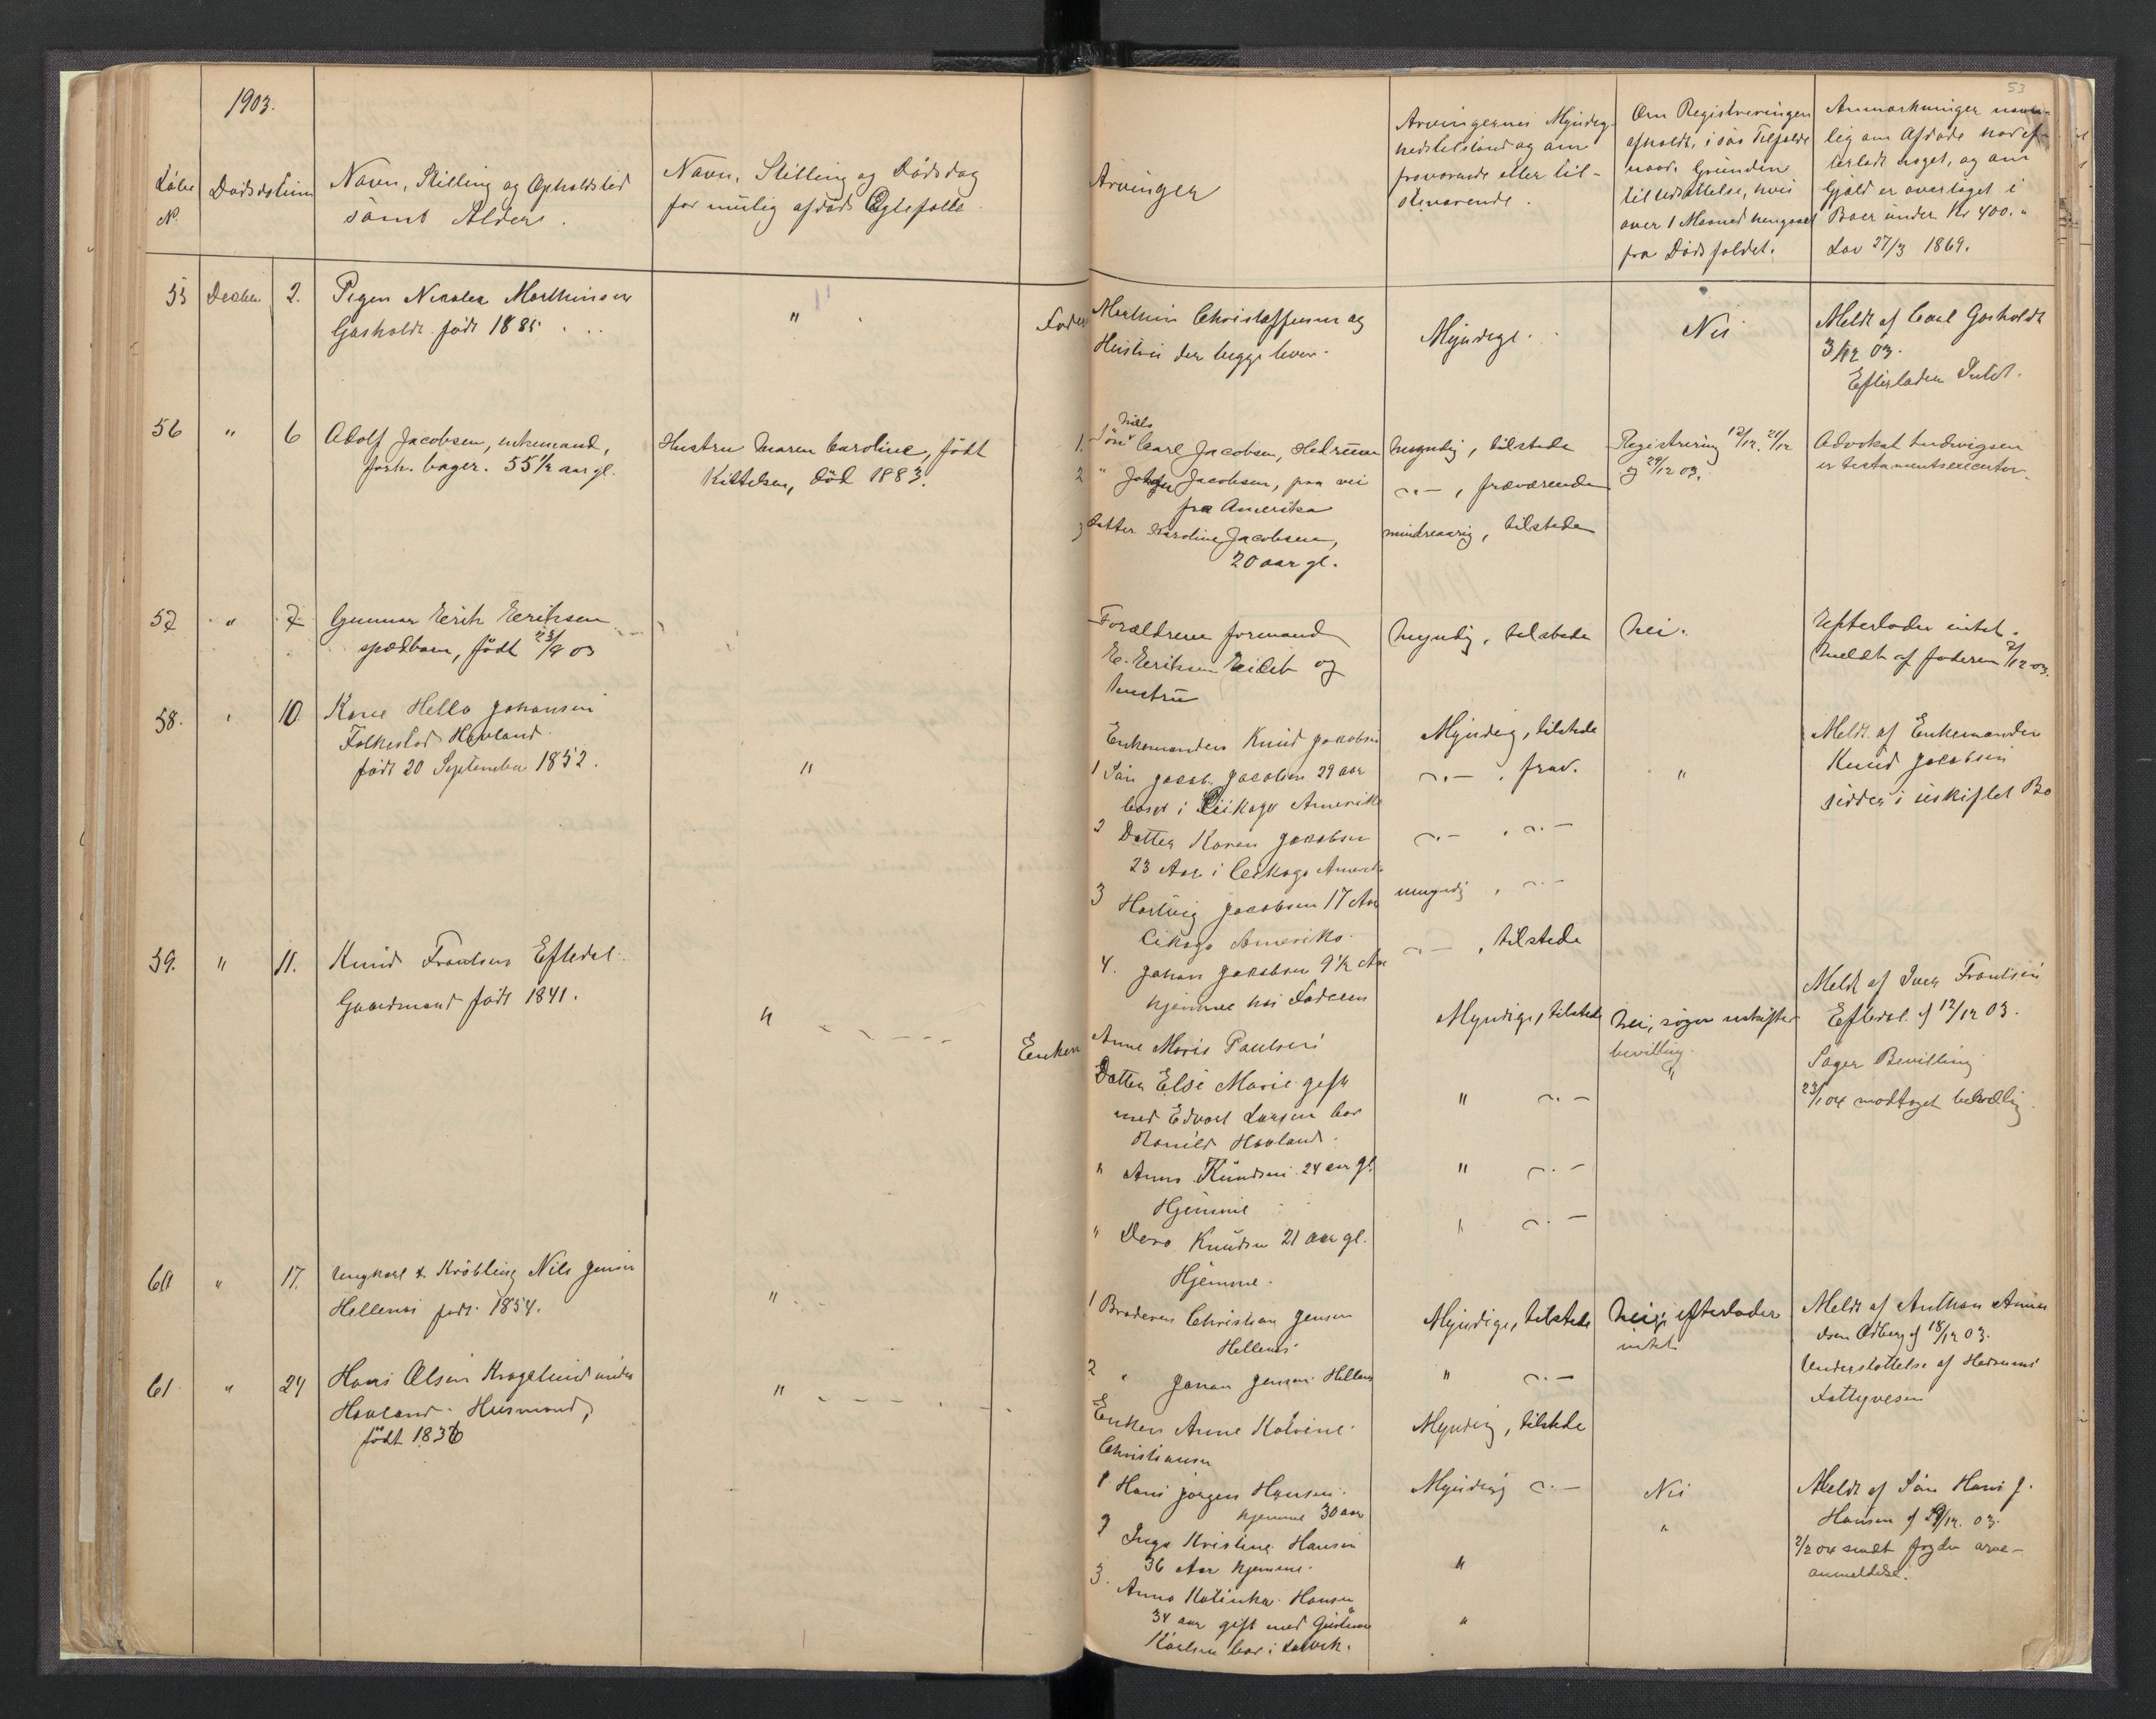 53
1903.
Løbe N.
Dødsdatum
Navn, Stilling og Opholdsted
samt Alder.
Navn, Stilling og Dødsdag
for mulig afdød Egtefelle
Arvinger
Arvingernes Myndig-
hedstilstand og om
fraværende eller til-
stævarende.
Om Registreringen
afholdt, i saa Tilfælde
naar. Grunden
til Udsættelse, hvis
over 1 Maaned hengaaet
fra Dødsfaldet.
Anmærkninger navn-
lig om Afdøde har ef-
terladt noget, og om
Gjæld er overtaget i
Boer under Kr 400. "
Lov 27/3 1869.
55 Decber. 2. Pigen Nicolea Marthinsen
Gasholdt født 1885
"
Fader Marthin Christoffersen og
Hustru der begge lever.
Myndige.
Nei
Meldt af Carl Gasholdt
3/12 03.
Efterlader Intet.
56 " 6 Adolf Jacobsen, enkemand,
forh. bager. 55 1/2 aar gl.
Hustru Maren Caroline, født
Kittelsen, død 1883.
1. Søn Niels Carl Jacobsen, Hedrum
2 " Johan Jacobsen, paa vei
fra Amerika
3 Datter Karoline Jacobsen,
20 aar gl.
myndig, tilstede
–"–, fraværende
mindreaarig, tilstede
Registrering 12/12. 21/12
og 29/12 03.
Advokat Ludvigsen
er testamentsexecutor
57 " 7 Gunnar Erik Eriksen
spædbarn, født 23/9 03
Forældrene formand
E. Eriksen Eidet og
hustru
Myndig, tilstede
Nei.
Efterlader intet.
Meldt af faderen 9/12 03.
58. " 10. Karie Hella Johansen
Falkestad Havland
født 20 September 1852.
"
Enkemanden Knud Jacobsen
1 Søn Jacob Jacobsen 29 aar
boser i Cikago Amerika
2 Datter Karen Jacobsen
23 Aar i Cikago Amerika
3 Hartvig Jacobsen 17 Aar
Cikago Amerika.
4. Johan Jacobsen 9 1/2 Aar
hjemme hos Faderen
Myndig, tilstede
–"–, frav.
–"– , –"–
umyndig , –"–
–"–, tilstede
"
Meldt af Enkemanden
Knud Jacobsen
sidder i uskiftet Bo
59. " 11. Knud Frantsen Eftedal
Gaardmand født 1841.
"
Enken Anne Marie Paulsen
Datter Else Marie gift
med Edvart Larsen bor
Havland.
" Anna Knudsen 24 aar gl.
Hjemme
" Dora Knudsen 21 aar gl.
Hjemme.
Myndige, tilstede
" –"–
" –"–
" –"–
Nei, søger uskifte
bevilling.
"
Meldt af Iver Frantsen
Eftedal d 12/12 03.
Søger Bevilling
23/1 04 modtaget bevilling
60 " 17. Ungkarl & Krøbling Nils Jensen
Hellenes født 1854.
"
1 Broderen Christian Jensen
Hellenes
2 " Johan Jensen Hellenes
Myndige, tilstede
" –"–
Nei, efterlader
intet
Meldt af Anthon Amun
dsen Odberg d 18/12 03.
Understøttelse af Hedrums
Fattigvesen
61 " 24 Hans Olsen Kragelund under
Havland. Husmand,
født 1836
"
Enken Anne Katrine
Christiansen
1 Hans Jørgen Hansen.
hjemme 30 aar
2 Inga Kristine Hansen
36 Aar hjemme.
3. Anna Katinka Hansen
34 aar gift med Gustav
Karlsen bor i Larvik.
Myndig, tilstede
Myndig –"–
"
"
Nei
"
Meldt af Søn Hans J.
Hansen d 29/12. 03.
2/2 04 sendt fogden arve-
anmeldelse.